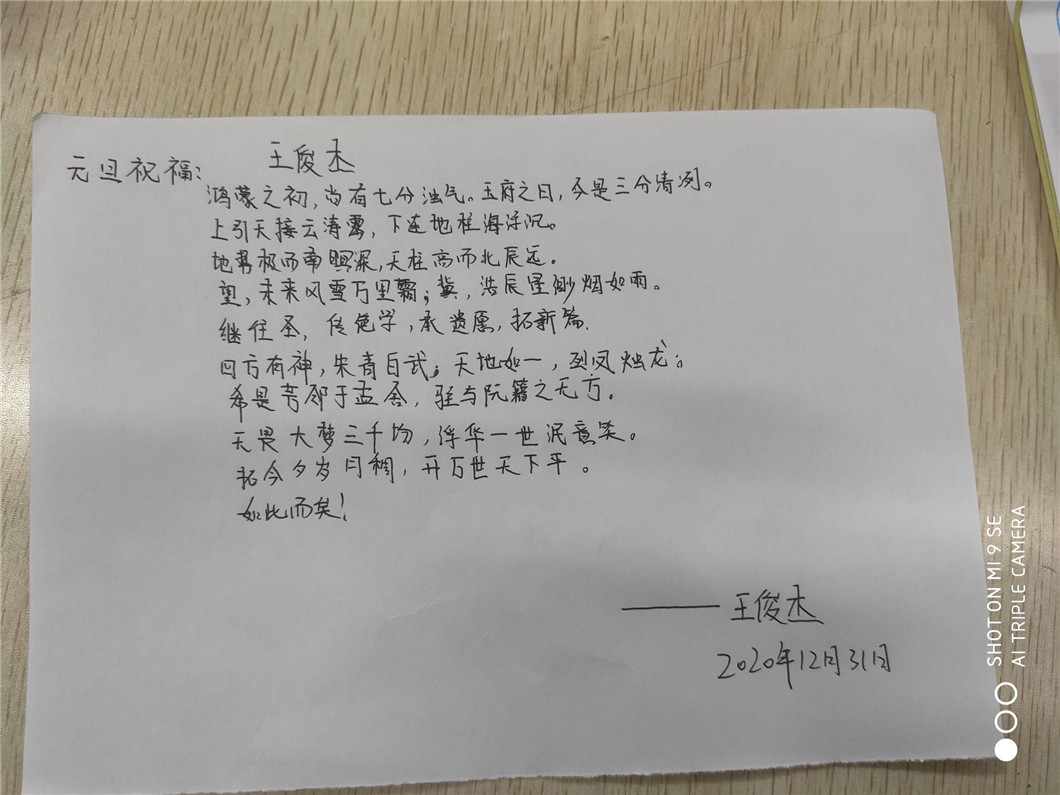 元旦祝福: 王俊杰
鸿蒙之初,尚有七分浊气。玉府之日,又是三分清冽。
上引天接云涛雾,下连地柱海浮沉。
地势极而南溟深,天柱高而北辰远。
望,未来风雪万里霜;冀,浩辰星渺烟如雨。
继往圣,传绝学,承遗愿,拓新篇.
四方有神,朱青白武;天地如一,烈风烛龙;
希是芳邻于孟舍,驻与阮籍之无方。
无畏大梦三千均,浮华一世泯意笑。
拓今夕岁月稠,开万世天下平。
如此而矣!
——王俊杰
2020年12月31日
SHOT ON MI 9 SE
AI TRIPLE CAMERA